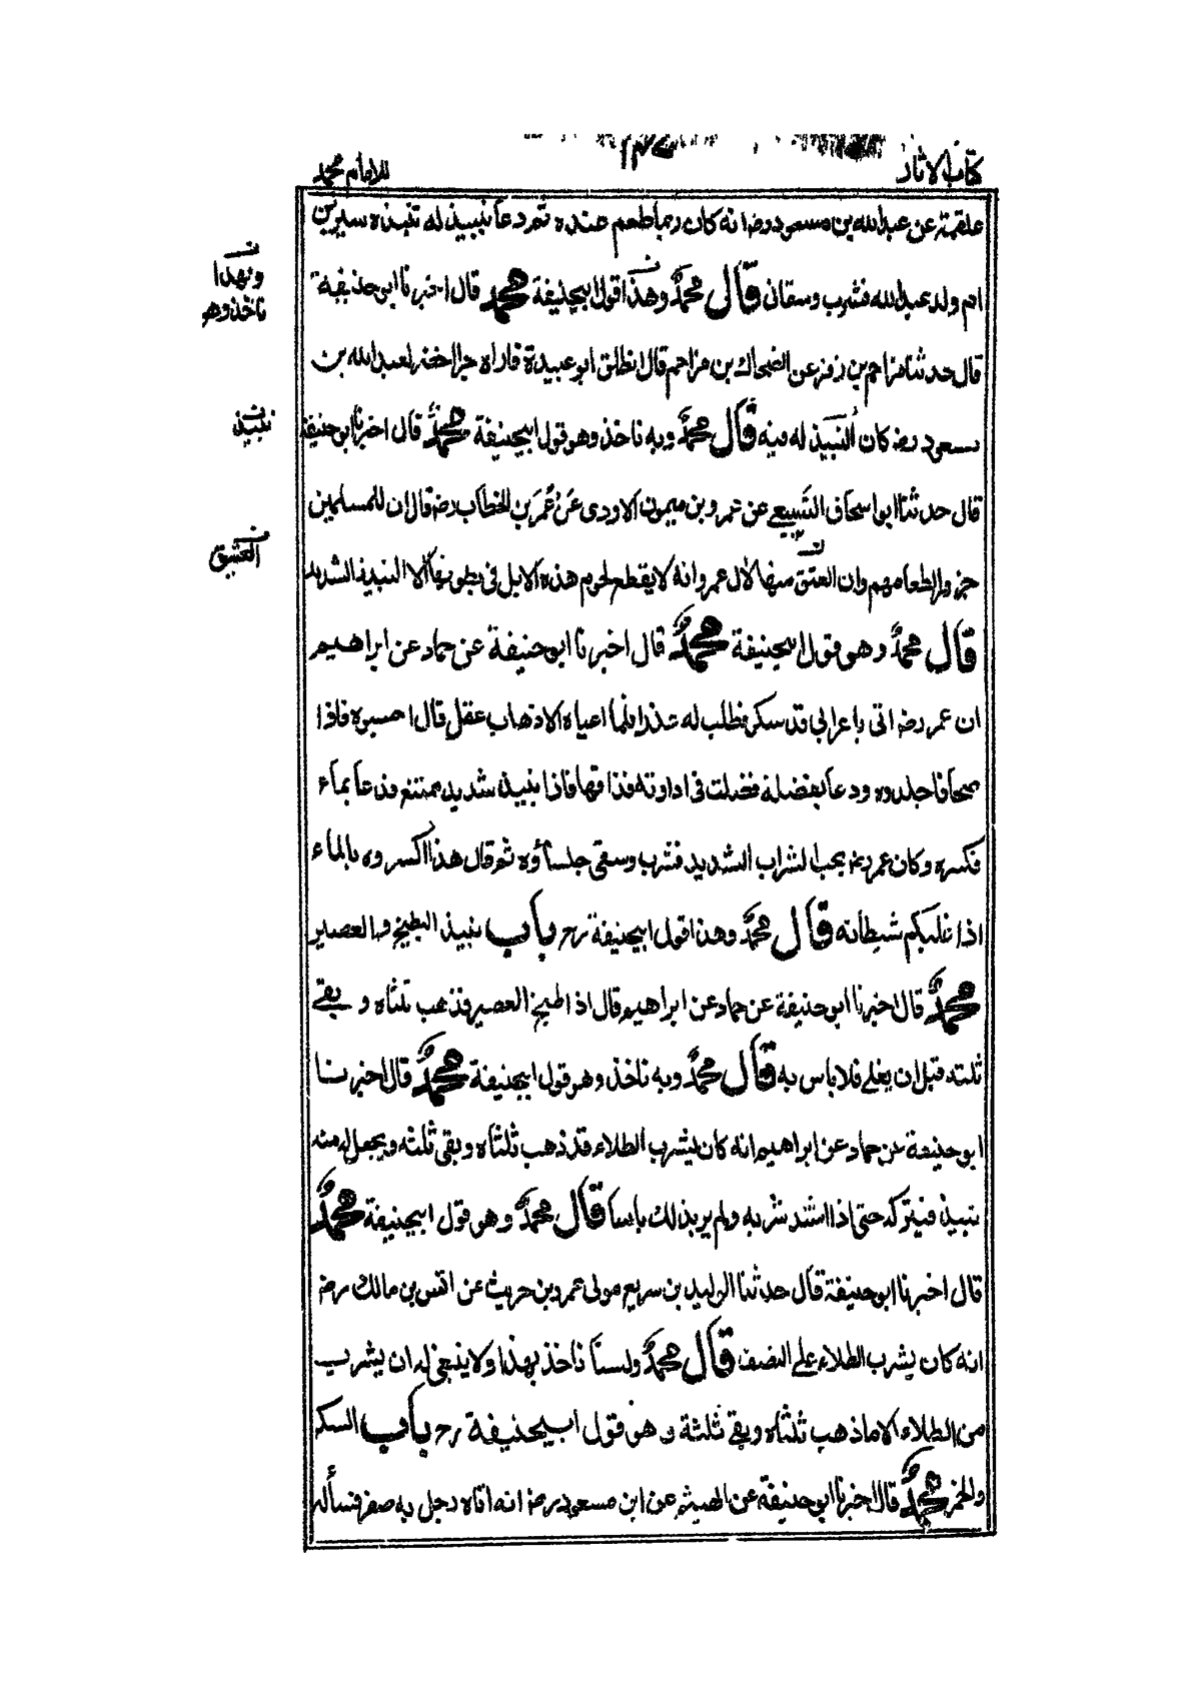 كتاب الاثار
للامام محمد
علقمة عن عبد الله بن مسعود رضـ انه كان ربما طعم عنده ثم دعا بنبيذ له تنبذه سيرين
ام ولد عبد الله فشرب وسقانى قال محمدٌ وهذا قول ابيحنيفة محمد قال اخبرنا ابو حنيفة
قال حدثنا مزاحم بن زفر عن الضحاك بن مزاحم قال انطلق ابو عبيدة فاراه جرا اخضر لعبد الله بن
مسعود رضـ كان النبيذ له فيه قال محمدٌ وبه ناخذ وهو قول ابيحنيفة محمدٌ قال اخبرنا ابو حنيفة
قال حدثنا ابو اسحاق السَّبِيعى عن عمرو بن ميمون الاودى عَنْ عُمَرَ بن الخطاب رضـ قال ان للمسلمين
جزورا لطعامهم وان العتق منها لاٰل عمر وانه لا يقطع لحوم هذه الابل فى بطوننا الا النبيذ الشديد
قال محمدٌ وهو قول ابيحنيفة محمدٌ قال اخبرنا ابو حنيفة عن حماد عن ابراهيم
ان عمر رضـ اتى باعرابى قد سكر فطلب له عذرا فلما اعياه الا ذهاب عقل قال احبسوه فاذا
صحا فاجلدوه ودعا بفضلة فضلت فى اداوته فذاقها فاذا نبيذ شديد ممتنع فدعا بماء
فكسره وكان عمر رضـ يحب الشراب الشديد فشرب وسقى جلساؤه ثم قال هذا اكسروه بالماء
اذا غلبكم شيطانه قال محمدٌ وهذا قول ابيحنيفة رحـ باب نبيذ البطيخ والعصير
محمدٌ قال اخبرنا ابو حنيفة عن حماد عن ابراهيم قال اذا طبخ العصير فذهب ثلثاه و بقى
ثلثه قبل ان يغلى فلا باس به قال محمدٌ وبه ناخذ وهو قول ابيحنيفة محمدٌ قال اخبرنا
ابو حنيفة عن حماد عن ابراهيم انه كان يشرب الطلاء قد ذهب ثلثاه وبقى ثلثه ويجعل له منه
نبيذ فيتركه حتى اذا اشتد شربه ولم ير بذلك باسا قال محمدٌ وهو قول ابيحنيفة محمدٌ
قال اخبرنا ابو حنيفة قال حدثنا الوليد بن سريع مولى عمرو بن حريث عن انس بن مالك رضـ
انه كان يشرب الطلاء على النصف قال محمدٌ ولسنا ناخذ بهذا ولا ينبغى له ان يشرب
من الطلاء الا ما ذهب ثلثاه وبقى ثلثه وهو قول ابيحنيفة رحـ باب السكر
والخمر محمدٌ قال اخبرنا ابو حنيفة عن الهيثم عن ابن مسعود رضـ انه اتاه رجل به صفر فسأله
وبهذا
ناخذ وهو
نبيذ
العشيق